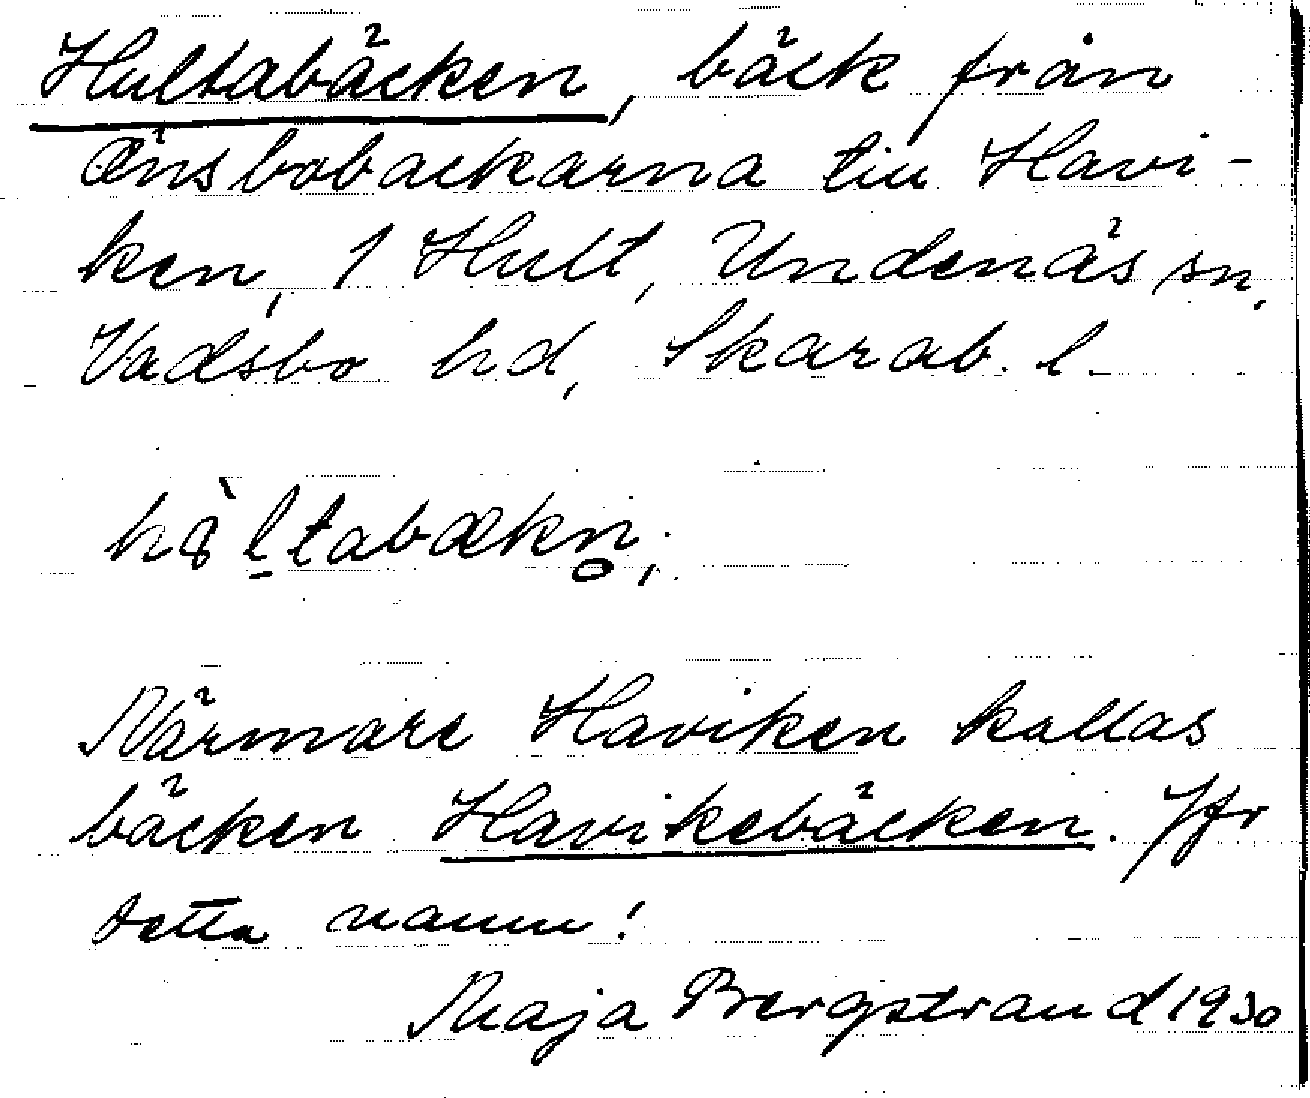 Hultabäcken, bäck från
Änsbobackarna till Havi-
ken, 1 Hult, Undenäs sn,
Vadsbo hd, Skarab. l.
Närmare Haviken kallas
bäcken Havikebäcken. Jfr
detta namn!
Maja Bergstrand 1930